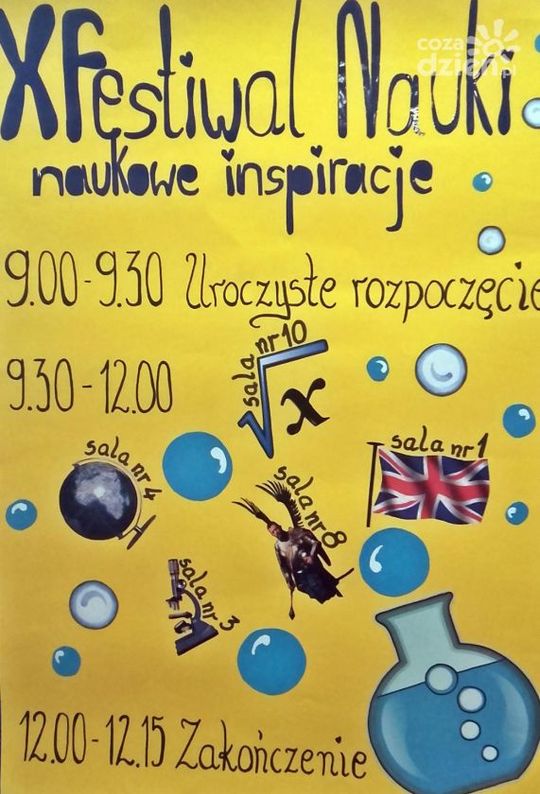 X Festiwal Nauki
naukowe inspiracje
9.00-9.30 Uroczyste rozpoczęcie
sala nr 10
9.30-12.00
x
sala nr 1
sala nr 4
sala nr 8
sala nr 3
12.00-12.15 Zakończenie
coza
dzien.pl